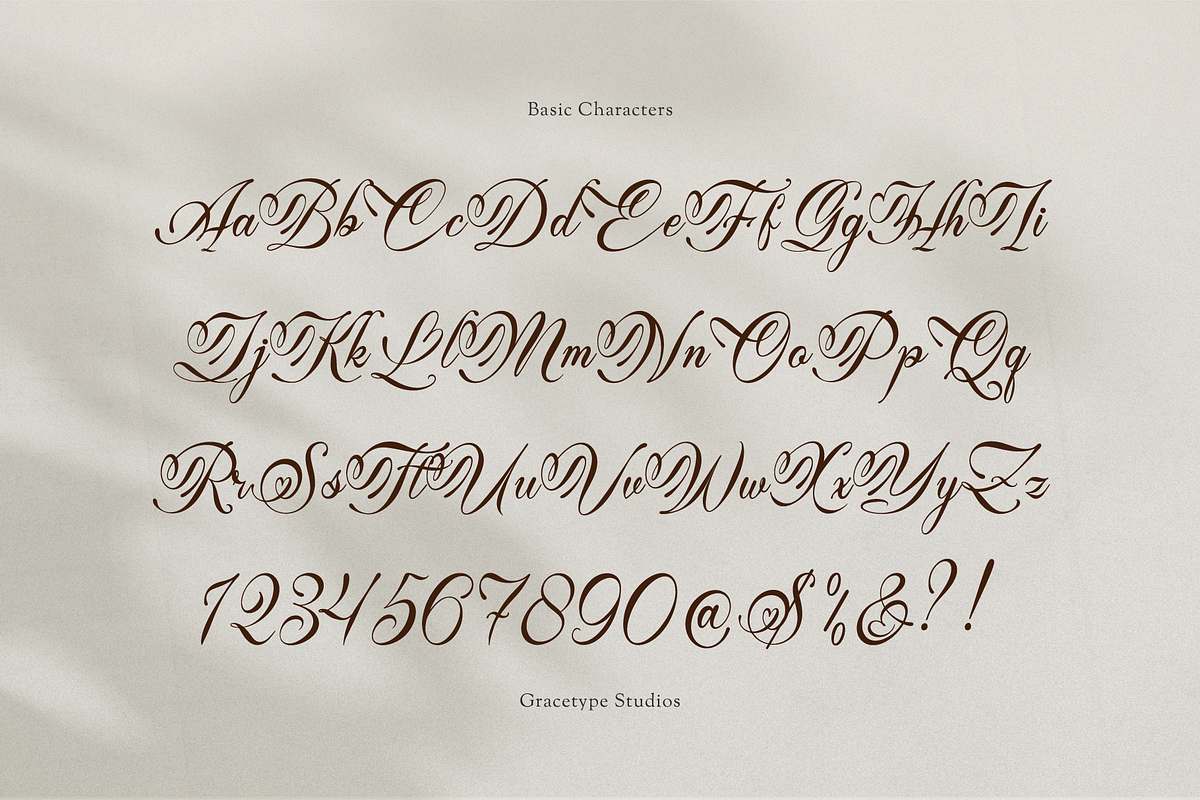 Basic Characters
AaBbCcDdEeFfGgHhIi
JjKkLlMmNnOoPpQq
RrSsTtUuVvWwXxYyZz
1234567890@$%&?!
Gracetype Studios